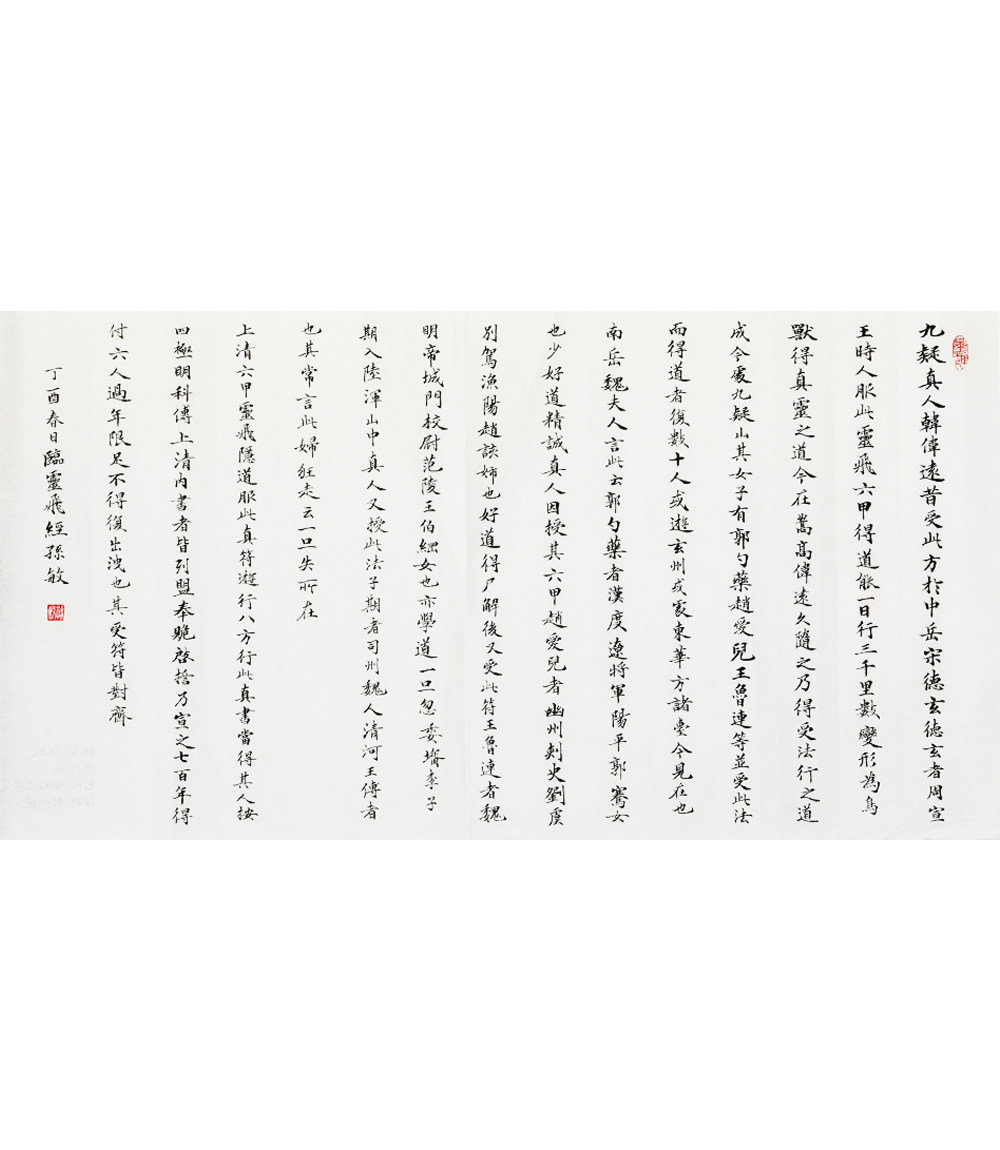 九疑真人韓偉遠昔受此方於中岳宋德玄德玄者周宣
王時人服此靈飛六甲得道能一日行三千里數變形為鳥
獸得真靈之道今在嵩高偉遠久隨之乃得受法行之道
成今處九疑山其女子有郭勺藥趙愛兒王魯連等並受此法
而得道者復數十人或遊玄州或處東華方諸臺今見在也
南岳魏夫人言此云郭勺藥者漢度遼將軍陽平郭騫女
也少好道精誠真人因授其六甲趙愛兒者幽州刺史劉虞
別駕漁陽趙該姉也好道得尸解後又受此符王魯連者魏
明帝城門校尉范陵王伯綱女也亦學道一旦忽委壻李子
期入陸渾山中真人又授此法子期者司州魏人清河王傳者
也其常言此婦狂走云一旦失所在
上清六甲靈飛隱道服此真符遊行八方行此真書當得其人按
四極明科傳上清內書者皆列盟奉跪啓捨乃宣之七百年得
付六人過年限足不得復出洩也其受符皆對齋
丁酉春日臨靈飛經孫敏